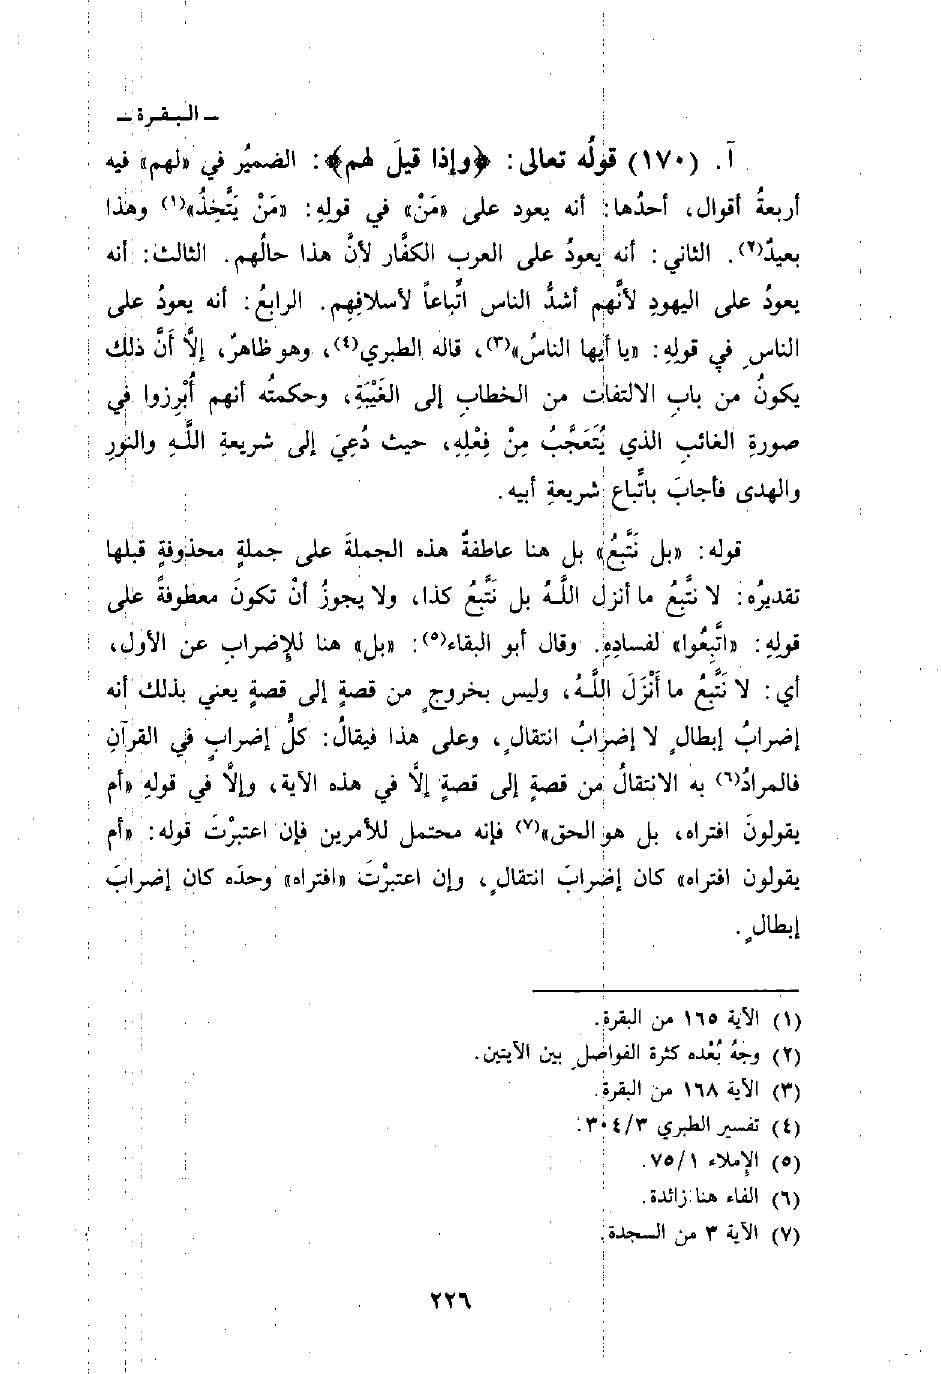 ـ البـقـرة ـ
آ. (١٧٠) قولُه تعالى: ﴿وإذا قيلَ لهم﴾: الضميُر في «لهم» فيه
أربعةُ أقوال، أحدُها: أنه يعود على «مَنْ» في قولِهِ: «مَنْ يَتَّخِذُ»(١) وهذا
بعيدٌ(٢). الثاني: أنه يعودُ على العربِ الكفَّار لأنَّ هذا حالُهم. الثالث: أنه
يعودُ على اليهودِ لأنَّهم أشدُّ الناس اتِّباعاً لأسلافِهم. الرابعُ: أنه يعودُ على
الناسِ في قولِهِ: «يا أيها الناسُ»(٣)، قاله الطبري(٤)، وهو ظاهرٌ، إلَّا أنَّ ذلك
يكونُ من بابِ الالتفات من الخطاب إلى الغَيْبَةِ، وحكمتُه أنهم أُبْرِزوا في
صورةِ الغائب الذي يُتَعَجَّبُ مِنْ فِعْلِهِ، حيث دُعِيَ إلى شريعةِ اللَّهِ والنورِ
والهدى فأجابَ باتِّباع شريعةِ أبيه.
قوله: «بل نَتَّبعُ» بل هنا عاطفةٌ هذه الجملةَ على جملةٍ محذوفةٍ قبلها
تقديرُه: لا نتَّبعُ ما أنزل اللَّهُ بل نَتَّبعُ كذا، ولا يجوزُ أنْ تكونَ معطوفةً على
قولِهِ: «اتَّبِعُوا» لفسادِهِ. وقال أبو البقاء(٥): «بل» هنا للإِضرابِ عن الأول،
أي: لا نَتَّبعُ ما أَنْزَلَ اللَّهُ، وليس بخروجٍ من قصةٍ إلى قصةٍ يعني بذلك أنه
إضرابُ إبطالٍ لا إضرابُ انتقالٍ، وعلى هذا فيقالُ: كلُّ إضرابٍ في القرآنِ
فالمرادُ(٦) به الانتقالُ من قصةٍ إلى قصةٍ إلَّا في هذه الآية، وإلَّا في قولِهِ «أم
يقولونَ افتراه، بل هو الحق»(٧) فإنه محتمل للأمرين فإن اعتبرْتَ قوله: «أم
يقولون افتراه» كان إضرابَ انتقالٍ، وإن اعتبرْتَ «افتراه» وحدَه كان إضرابَ
إبطالٍ.
(١) الآية ١٦٥ من البقرة.
(٢) وجهُ بُعْده كثرة الفواصلِ بين الآيتين.
(٣) الآية ١٦٨ من البقرة.
(٤) تفسير الطبري ٣٠٤/٣.
(٥) الإملاء ٧٥/١.
(٦) الفاء هنا زائدة.
(٧) الآية ٣ من السجدة.
٢٢٦